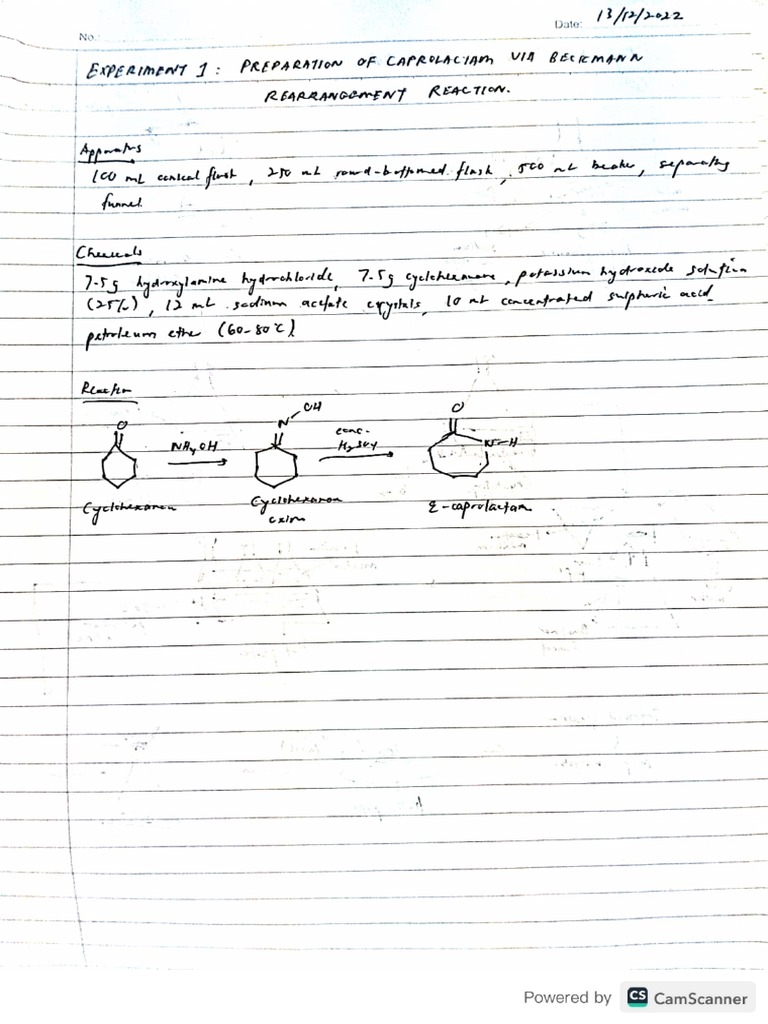 No:
Date: 13/12/2022
EXPERIMENT 1: PREPARATION OF CAPROLACTAM VIA BECKMANN
REARRANGEMENT REACTION.
Apparatus
100 mL conical flask, 250 mL round-bottomed flask, 500 mL beaker, separating
funnel
Chemicals
7.5g hydroxylamine hydrochloride, 7.5g cyclohexanone, potassium hydroxide solution
(25%), 12 mL sodium acetate crystals, 10 mL concentrated sulphuric acid
petroleum ether (60-80°C)
Reaction
O
NH2OH
N OH
conc.
H2SO4
O
N-H
Cyclohexanone
Cyclohexanone
oxime
ε-caprolactam
Powered by CS CamScanner